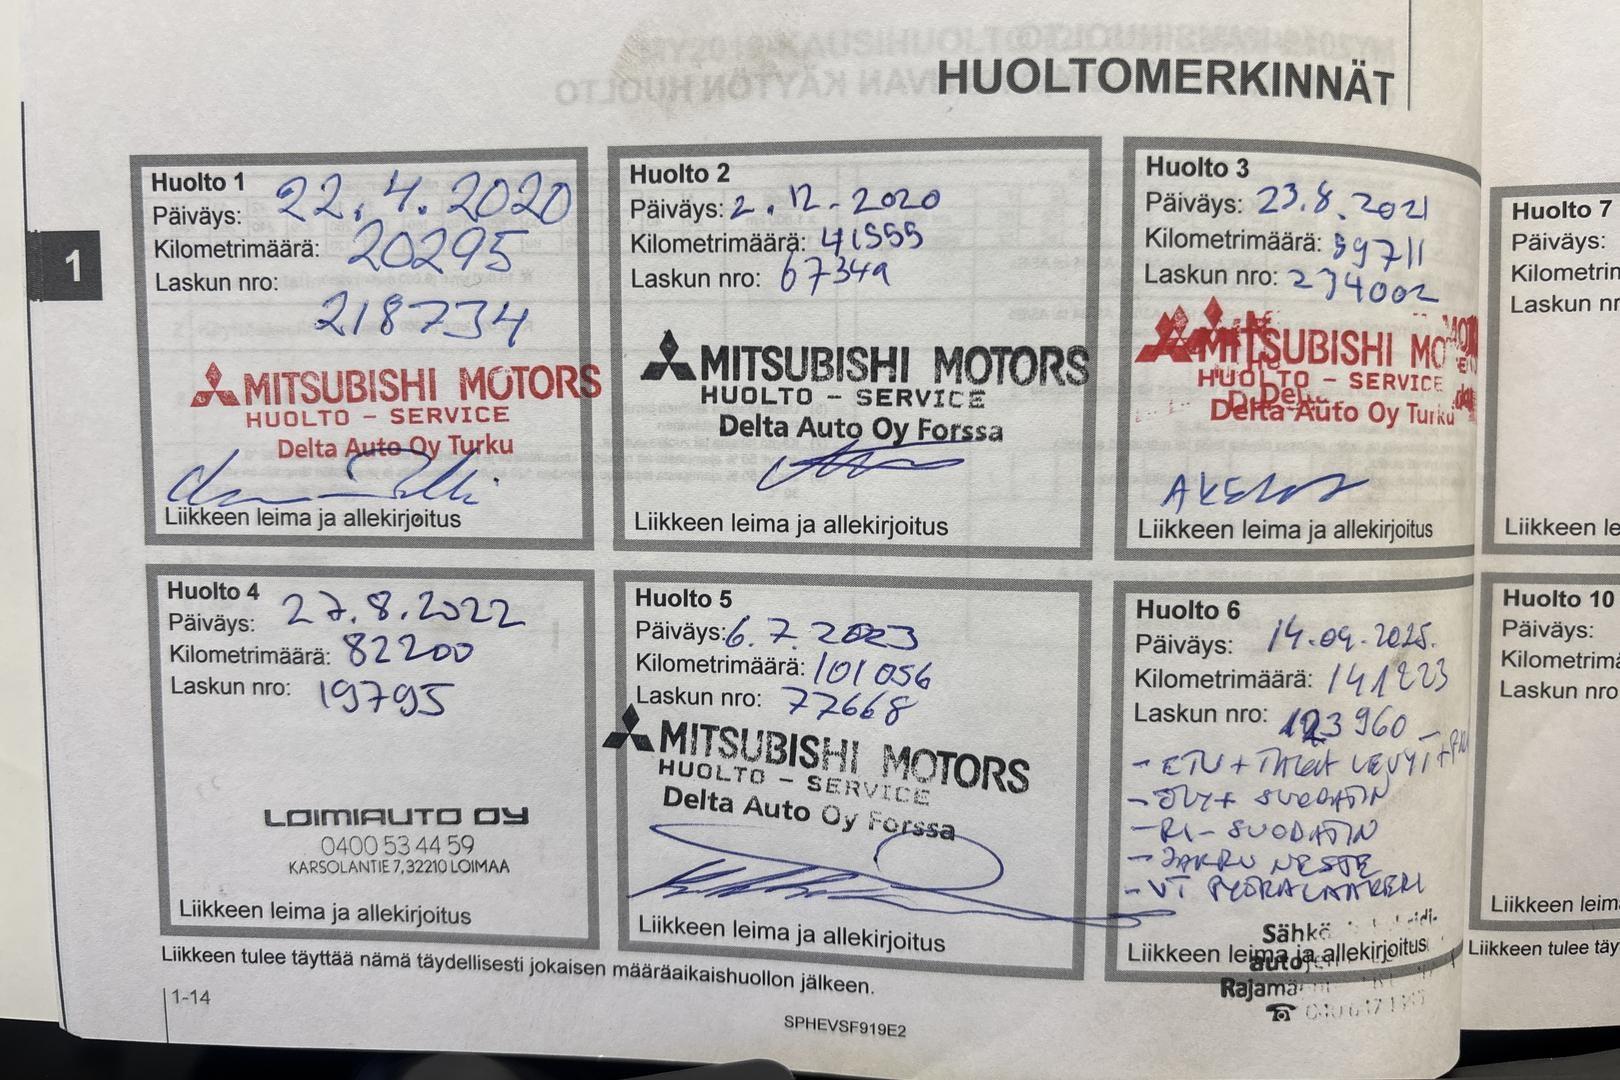 HUOLTOMERKINNÄT
1
Huolto 1
Päiväys: 22.4.2020
Kilometrimäärä: 20295
Laskun nro:
218734
MITSUBISHI MOTORS
HUOLTO - SERVICE
Delta Auto Oy Turku
Liikkeen leima ja allekirjoitus
Huolto 2
Päiväys: 2.12.2020
Kilometrimäärä: 41555
Laskun nro: 67349
MITSUBISHI MOTORS
HUOLTO - SERVICE
Delta Auto Oy Forssa
Liikkeen leima ja allekirjoitus
Huolto 3
Päiväys: 23.8.2021
Kilometrimäärä: 59711
Laskun nro: 234002
MITSUBISHI MO
HUOLTO - SERVICE
Delta Auto Oy Turku
Liikkeen leima ja allekirjoitus
Huolto 4
Päiväys: 27.8.2022
Kilometrimäärä: 82200
Laskun nro: 19795
LOIMIAUTO OY
0400 53 44 59
KARSOLANTIE 7, 32210 LOIMAA
Liikkeen leima ja allekirjoitus
Huolto 5
Päiväys: 6.7.2023
Kilometrimäärä: 101056
Laskun nro: 77668
MITSUBISHI MOTORS
HUOLTO - SERVICE
Delta Auto Oy Forssa
Liikkeen leima ja allekirjoitus
Huolto 6
Päiväys: 14.09.2025.
Kilometrimäärä: 141223
Laskun nro: 123960
- ETU + TAKA LEVYT +
- ÖLY + SUODATIN
- RI - SUODATIN
- JARRU NESTE
- VT PYÖRÄLAAKERI
Sähkö
Liikkeen leima ja allekirjoitus
auto
Rajamä
Huolto 7
Päiväys:
Kilometrim
Laskun nr
Liikkeen le
Huolto 10
Päiväys:
Kilometrimä
Laskun nro
Liikkeen leim
Liikkeen tulee täyttää nämä täydellisesti jokaisen määräaikaishuollon jälkeen.
Liikkeen tulee täy
1-14
SPHEVSF919E2